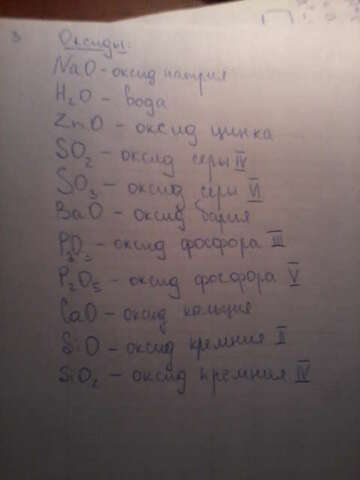 Оксиды:
NaO - оксид натрия
H₂O - вода
ZnO - оксид цинка
SO₂ - оксид серы IV
SO₃ - оксид серы VI
BaO - оксид бария
P₂O₃ - оксид фосфора III
P₂O₅ - оксид фосфора V
CaO - оксид кальция
SiO - оксид кремния II
SiO₂ - оксид кремния IV